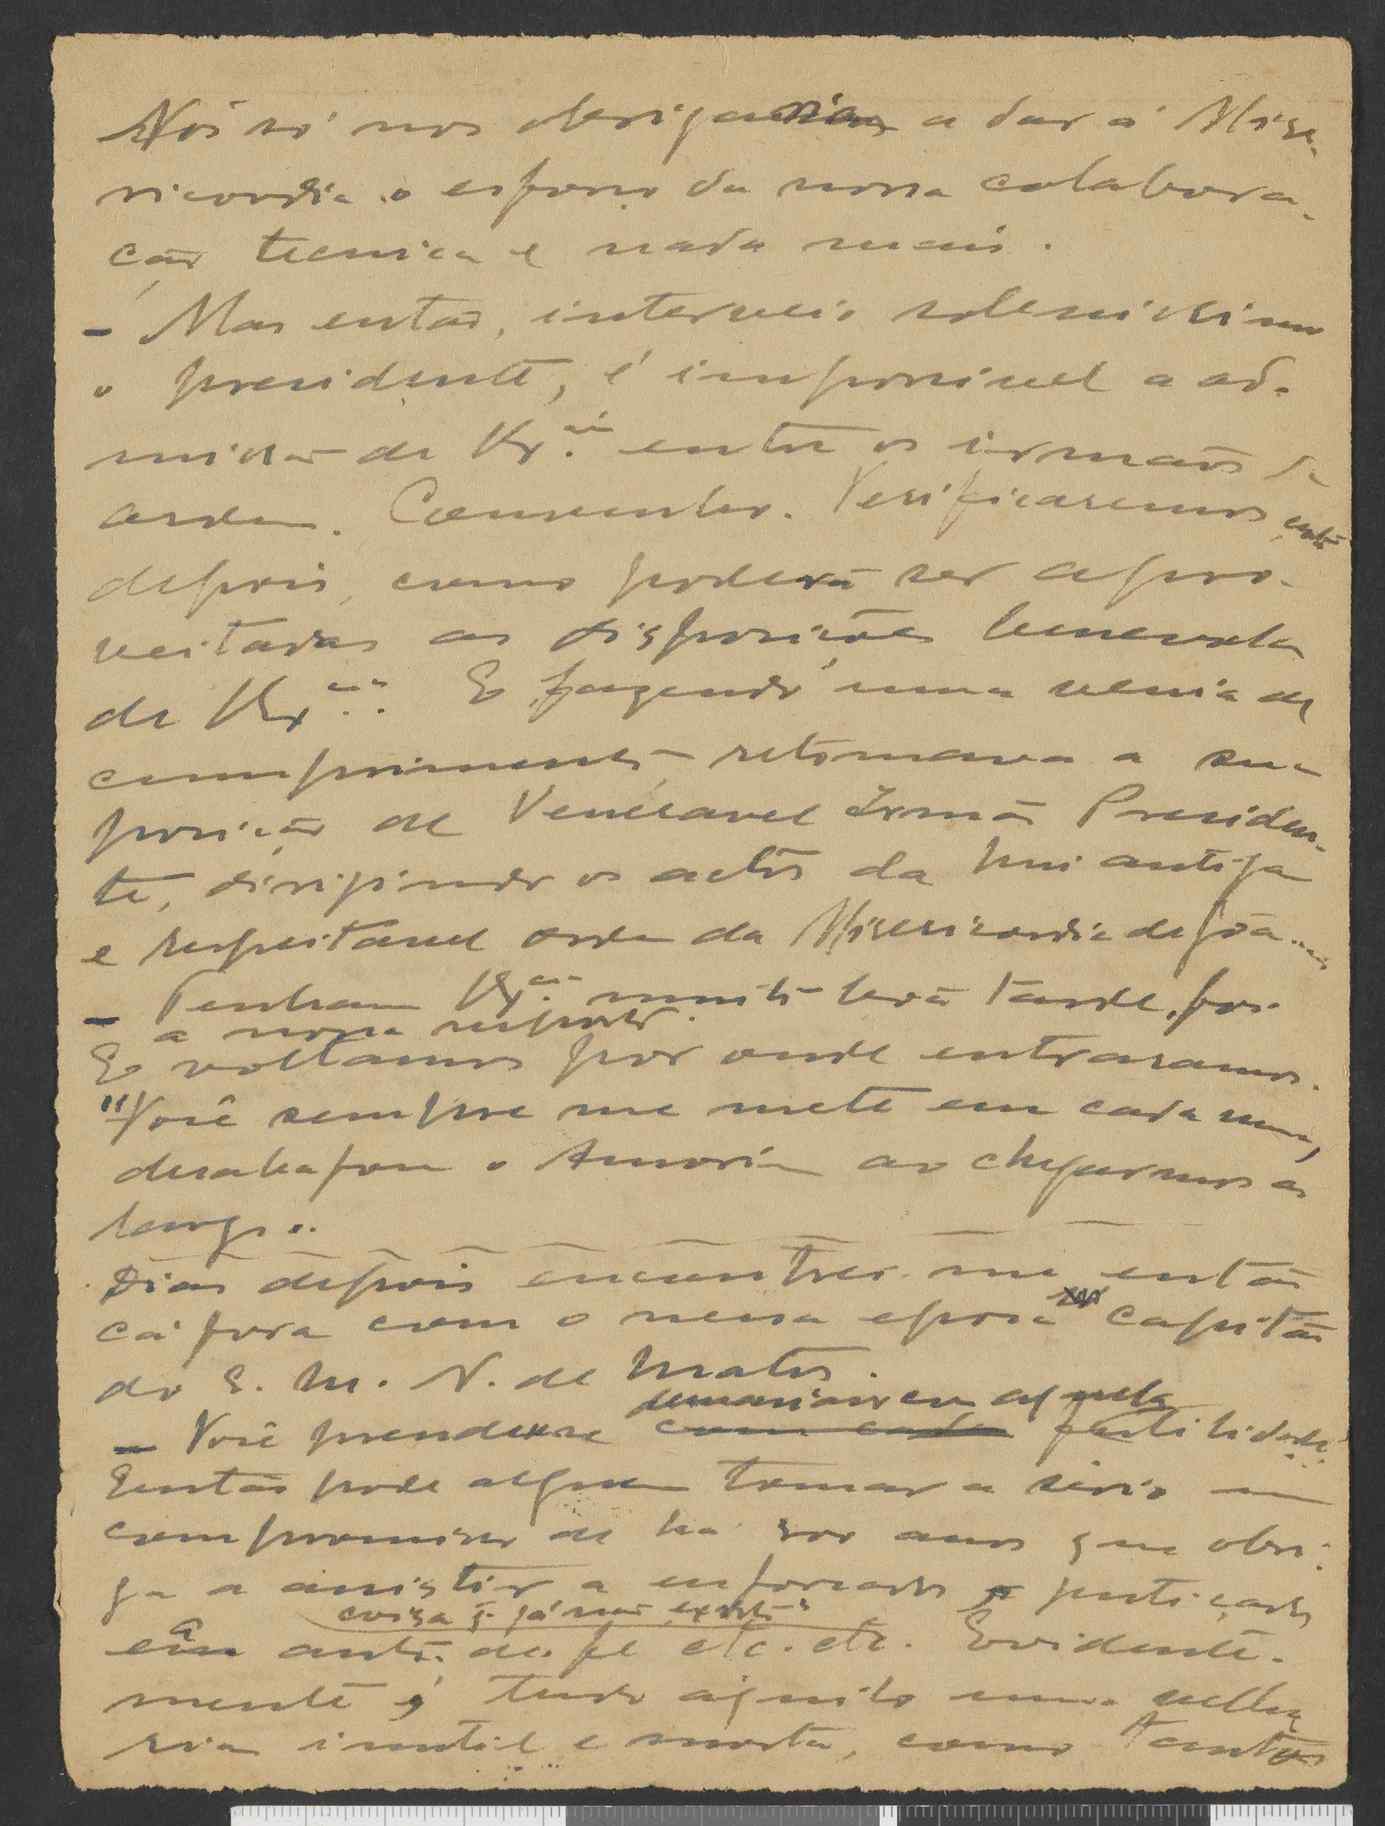 Nós só nos obrigamos a dar á Mise-
ricordia o esforço da nossa colabora-
ção tecnica e nada mais.
– Mas então, interveio solenissimo
o presidente, é impossivel a ad-
missão de Vx.as entre os irmãos da
ordem. Consultar. Verificaremos então
depois, como poderá ser apro-
veitadas as disposições benevolas
de Vx.as. E fazendo uma venia de
cumprimento retomava a sua
posição de Veneravel Irmão Presiden-
te, dirigindo os actos da mui antiga
e respeitavel ordem da Misericordia de Goa....
– Tenham Vx.as muito boa tarde, foi
a nossa resposta.
E voltamos por onde entraramos.
"Você sempre me mete em cada uma,
desabafou o Amorim ao chegarmos ao
largo..
Dias depois encontrei-me então
cá fora com o nessa epoca capitão
do E. M. N. de Matos.
– Você prendeu-se demasiado em aquela futilidade.
Então pode alguem tomar a serio um
compromisso de ha 300 anos que obri-
ga a assistir a enforcados e justiçados
coisa q. já não existe
em auto de fé etc. etc. Evidente-
mente é tudo aquilo uma velha-
ria inutil e morta, como tantas